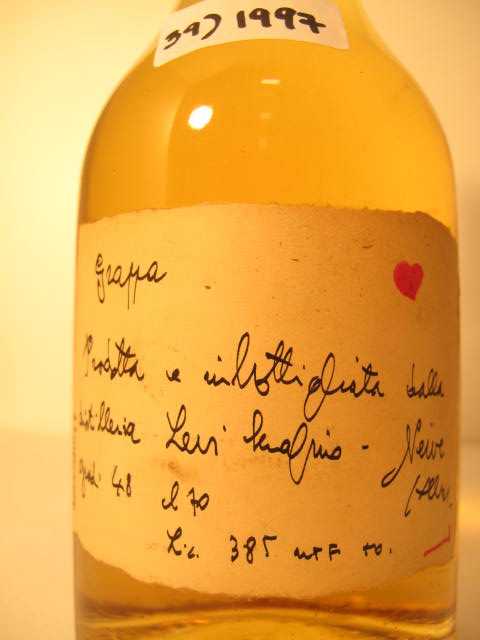 39) 1997
Grappa
Prodotta e imbottigliata dalla
distilleria Levi Serafino - Neive
gradi 48 cl 70
Lic. 385 UTF TO.